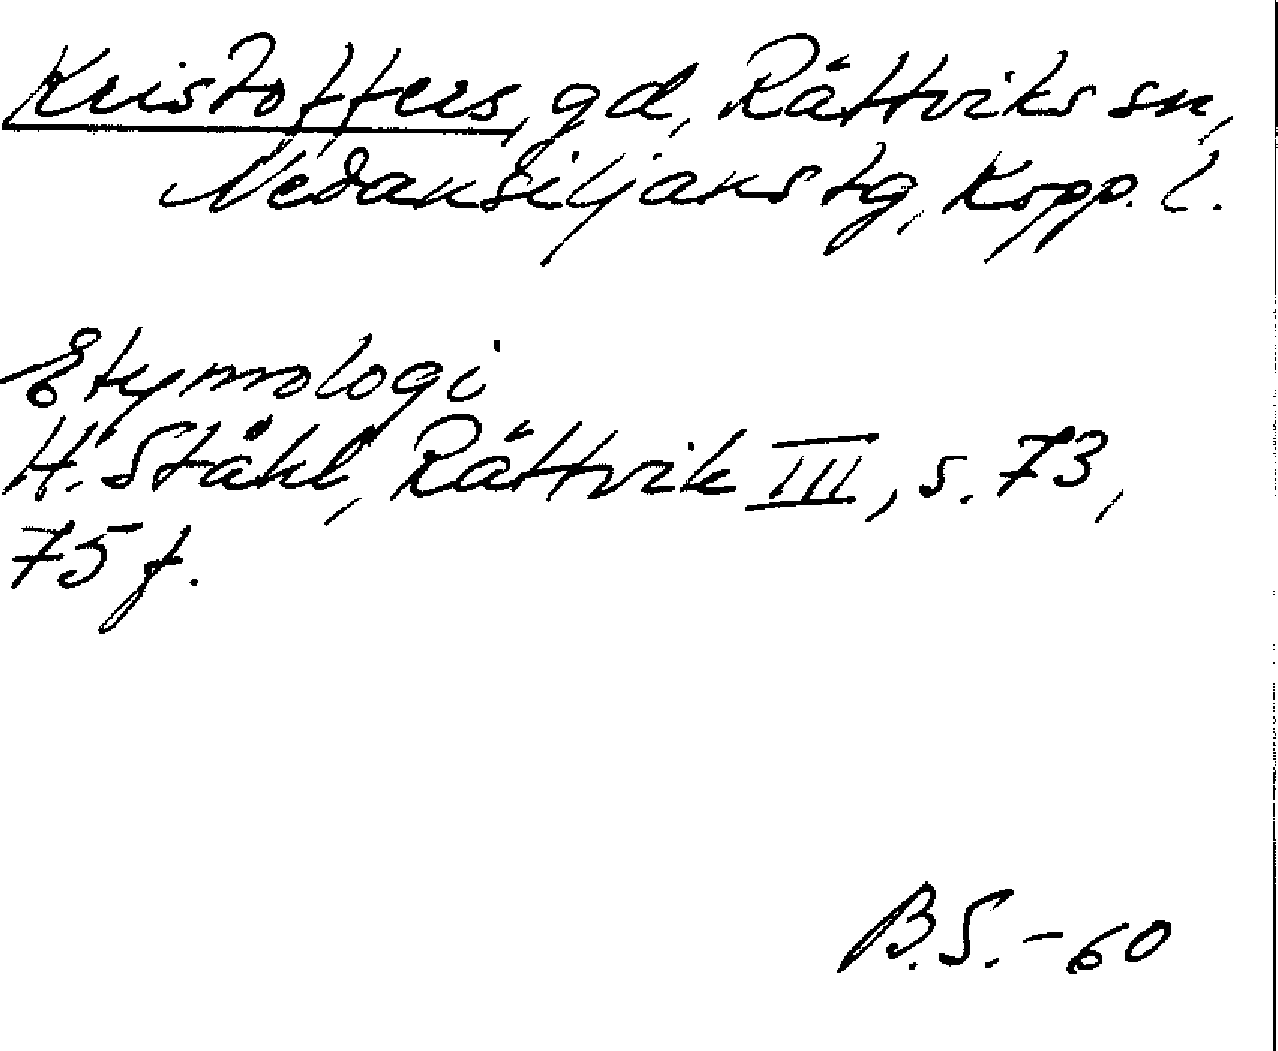 Kristoffers, gd, Rättviks sn,
Nedansiljans tg, Kopp. l.
Etymologi
H. Ståhl, Rättvik III, s. 73,
75 f.
B.S. - 60